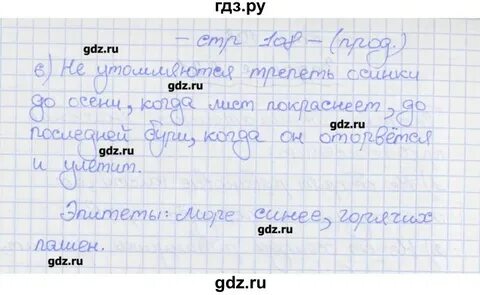 гдз.ру
- стр 108 - (прод.)
gdz.ru
в) Не утомляются трепеть осинки
gdz.ru
до осени, когда лист покраснеет, до
последней бури, когда он оторвётся
gdz.ru
gdz.ru
и улетит.
gdz.ru
Эпитеты: море синее, горячих
gdz.ru
пашен.
gdz.ru
gdz.ru